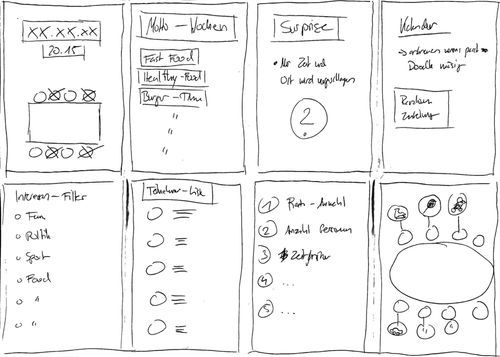 XX.XX.XX
20.15
Motto-Wochen
Fast Food
Healthy-Food
Burger-Time
"
"
Surprise
• Nur Zeit und
Ort wird vorgeschlagen
?
Kalender
→ eintragen wenn passt
Doodle mässig
Restaurant
Interessen-Filter
o Fun
o Politik
o Sport
o Food
o "
o "
Teilnehmer-Liste
1 Rest-Auswahl
2 Anzahl Personen
3 Zeitfenster
4 ...
5 ...